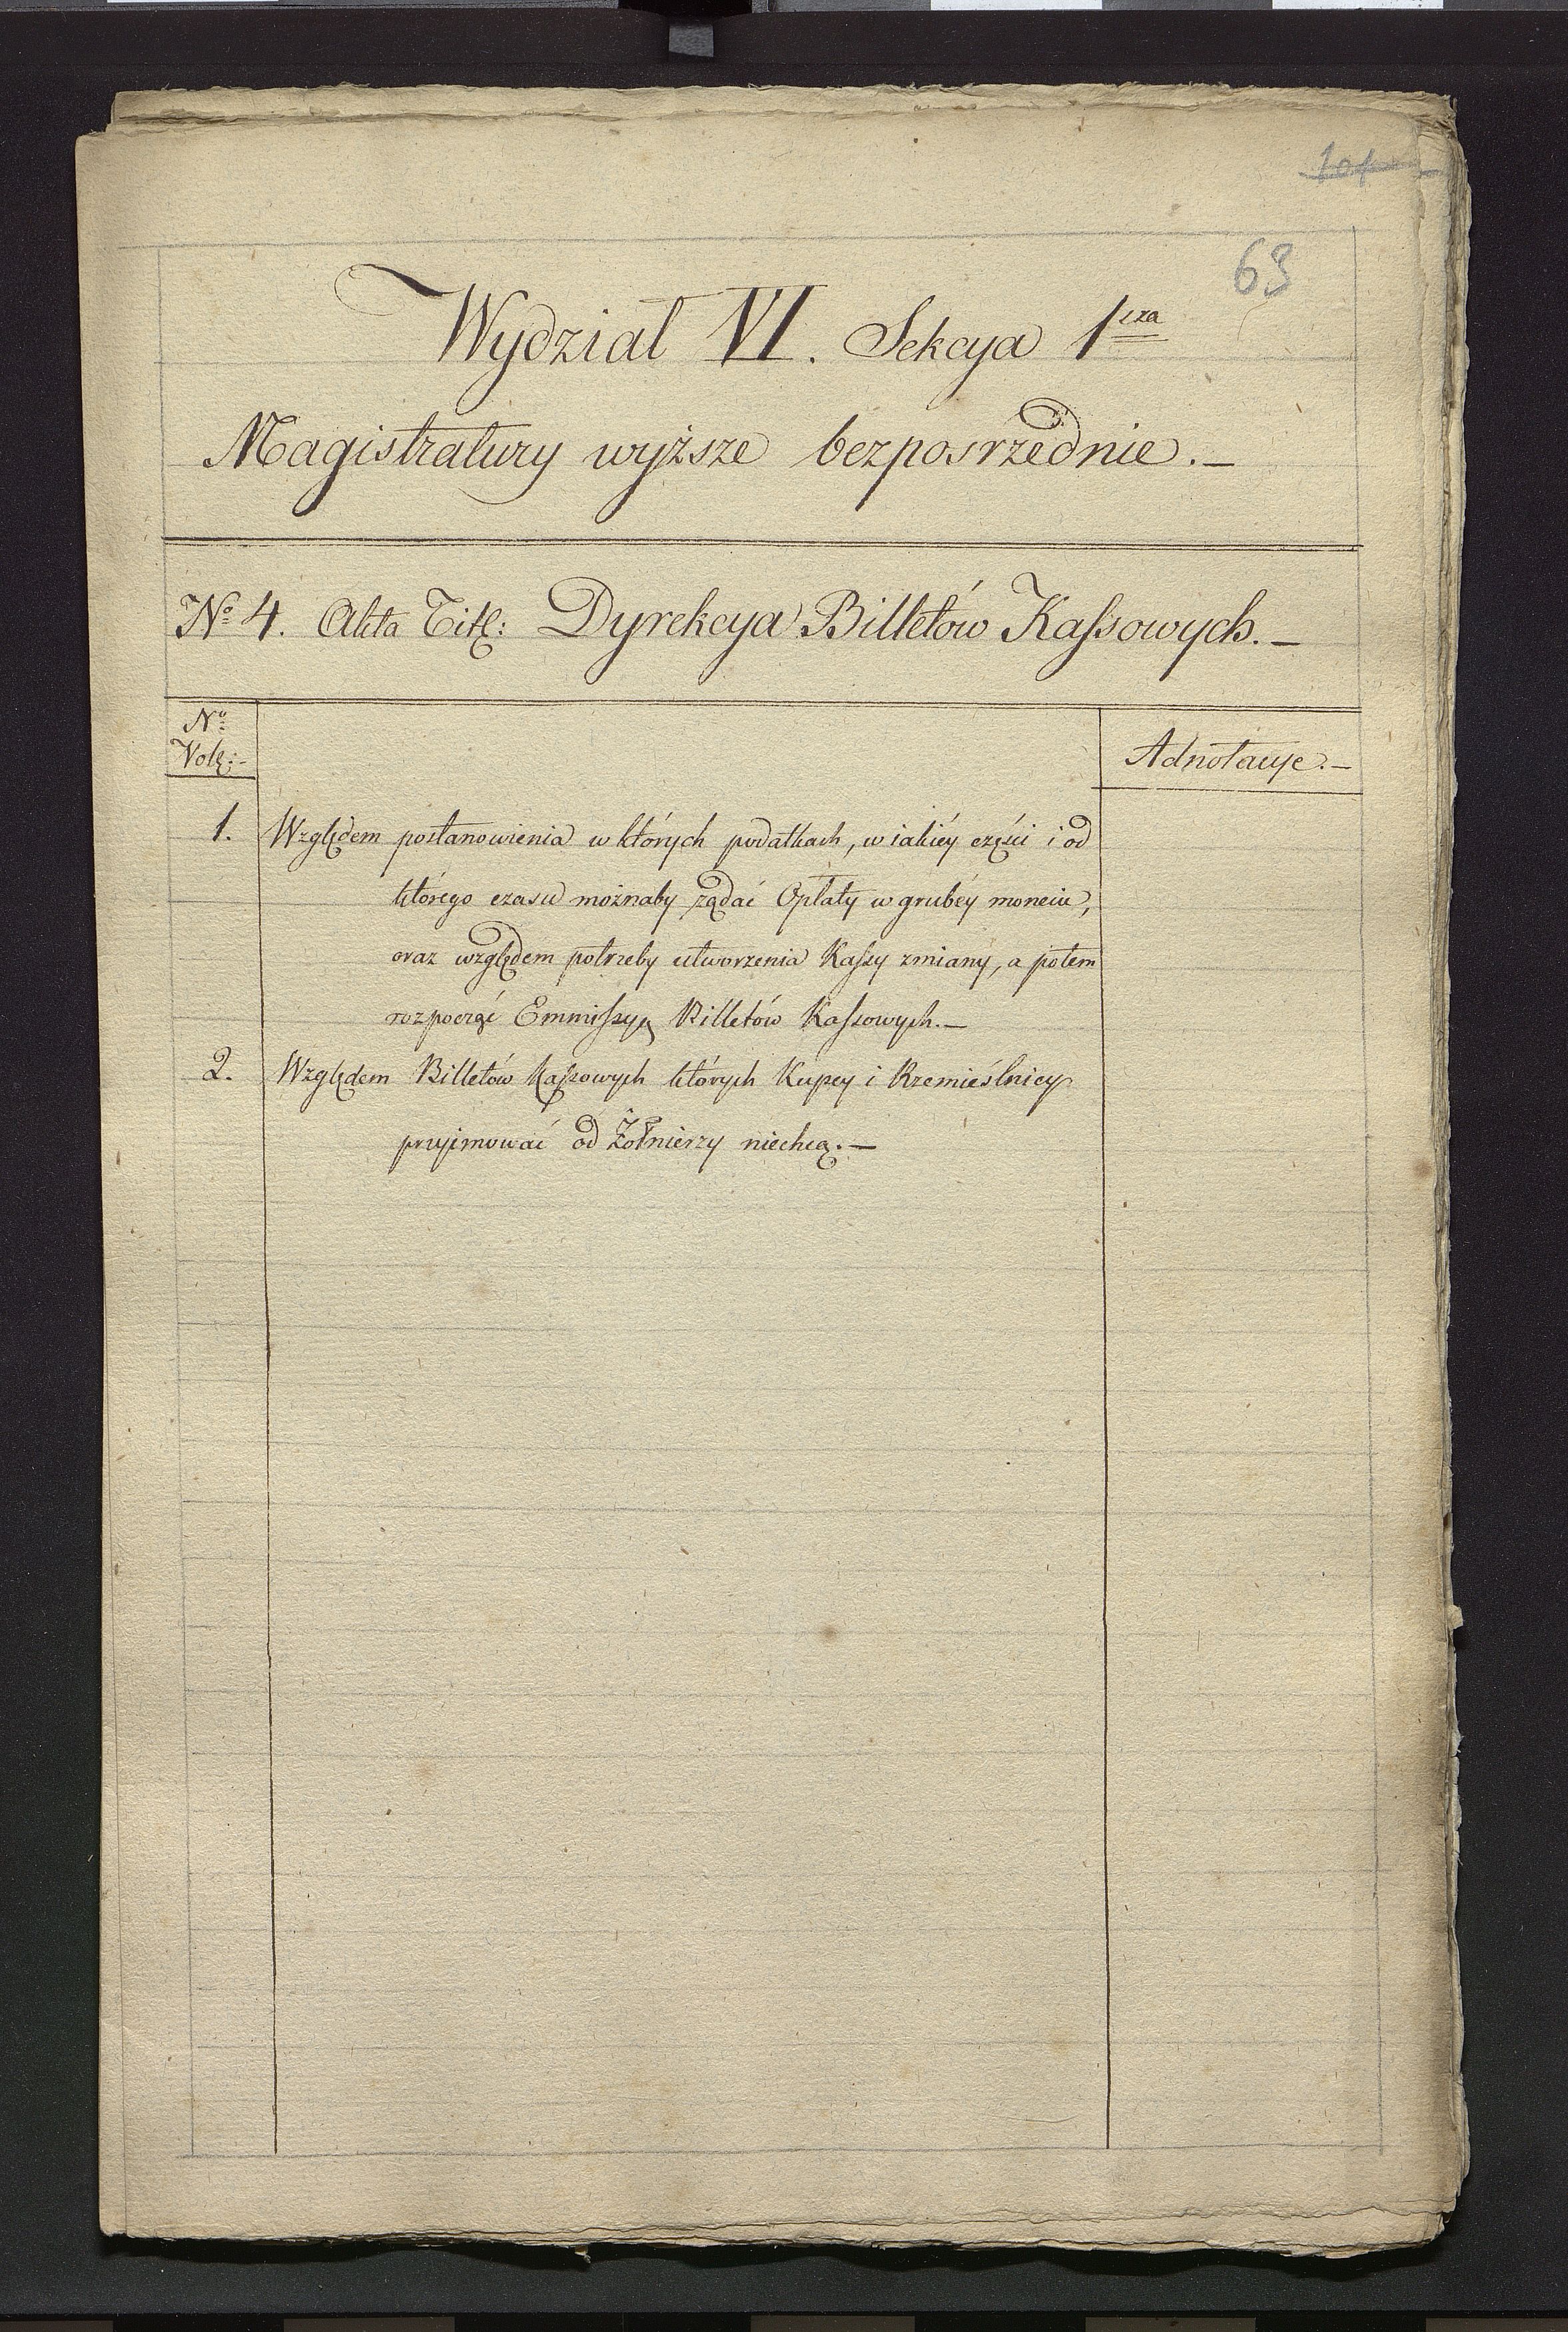 63
Wydział VI. Sekcya 1sza
Magistratury wyższe bezposrzednie.—
No 4. Akta Titl: Dyrekcya Billetów Kaſsowych.—
No
Vol:—
Adnotacye.—
1. Względem postanowienia w których podatkach, w iakiéy części i od
którego czasu możnaby żądać Opłaty w grubéy monecie,
oraz względem potrzeby utworzenia Kaſsy zmiany, a potem
rozpocząć Emmiſsyą Billetów Kaſsowych.—
2. Względem Billetów Kaſsowych których Kupcy i Rzemieślnicy
przyjmować od Żołnierzy niechcą.—